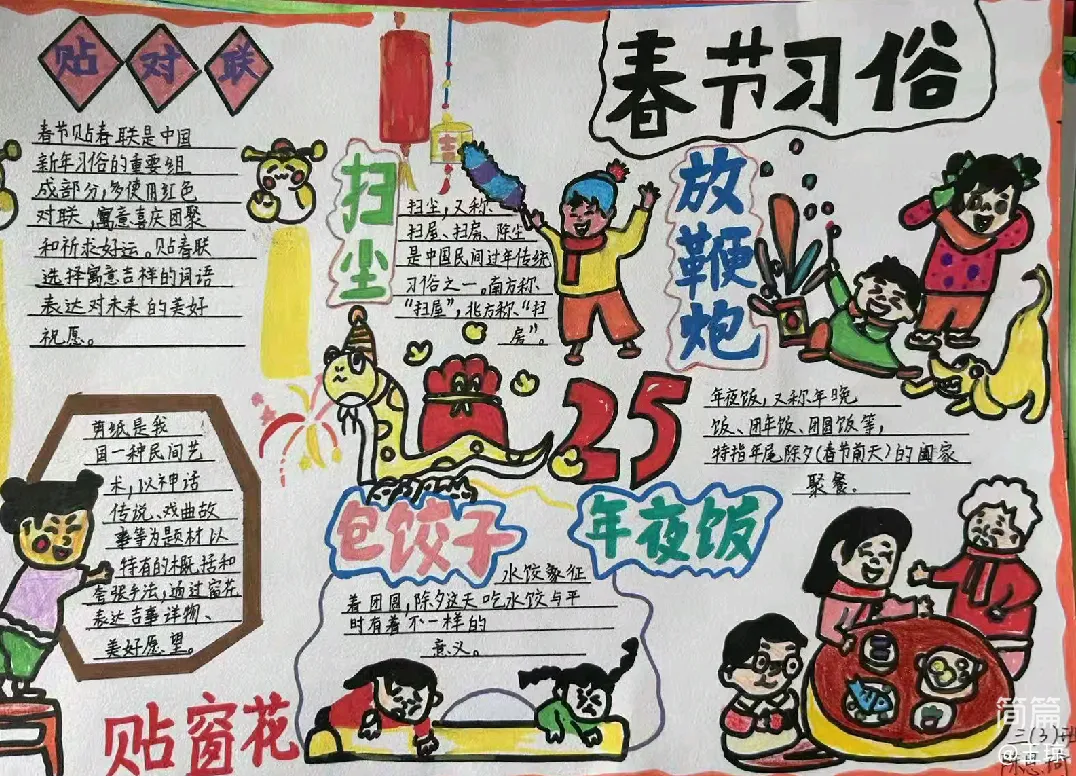 春节习俗
贴对联
春节贴春联是中国
新年习俗的重要组
成部分,多使用红色
对联,寓意喜庆团聚
和祈求好运。贴春联
选择寓意吉祥的词语
表达对未来的美好
祝愿。
扫尘
吉
扫尘,又称
扫屋、扫房、除尘
是中国民间过年传统
习俗之一。南方称
“扫屋”,北方称“扫
房”。
放鞭炮
剪纸是我
国一种民间艺
术,以神话
传说、戏曲故
事等为题材以
特有的概括和
夸张手法,通过窗花
表达吉事祥物、
美好愿望。
贴窗花
25
包饺子
水饺象征
着团圆,除夕这天吃水饺与平
时有着不一样的
意义。
年夜饭
年夜饭,又称年晚
饭、团年饭、团圆饭等,
特指年尾除夕(春节前天)的阖家
聚餐。
简篇
二(3)班